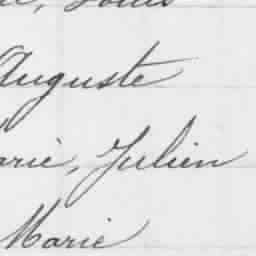 Louis
Auguste
Marie, Julien
Marie